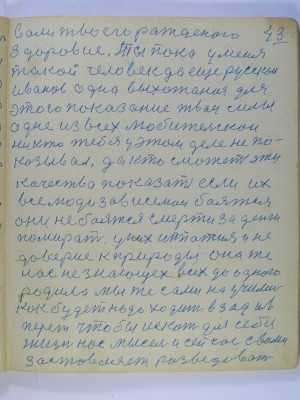 43
Сам твоего рожденого
здоровие. Ты пока у меня
такой человек да еще русской
Иванов одна выхожаная для
этого показание твои силы
одне из всех любительской
никто тебя у этом деле не по-
казывал, да кто сможет эти
качества показать если их
все люди зависимои боятся
они небоятся смерти за дети
помират, у них и
доверие к природе она же
нас не знающех всех до одного
родила мы же сами научили
как будет надо ходить взад и в
перет чтобы искат для себя
жизни нас мысел и сейчас свами
заставляет разведоват